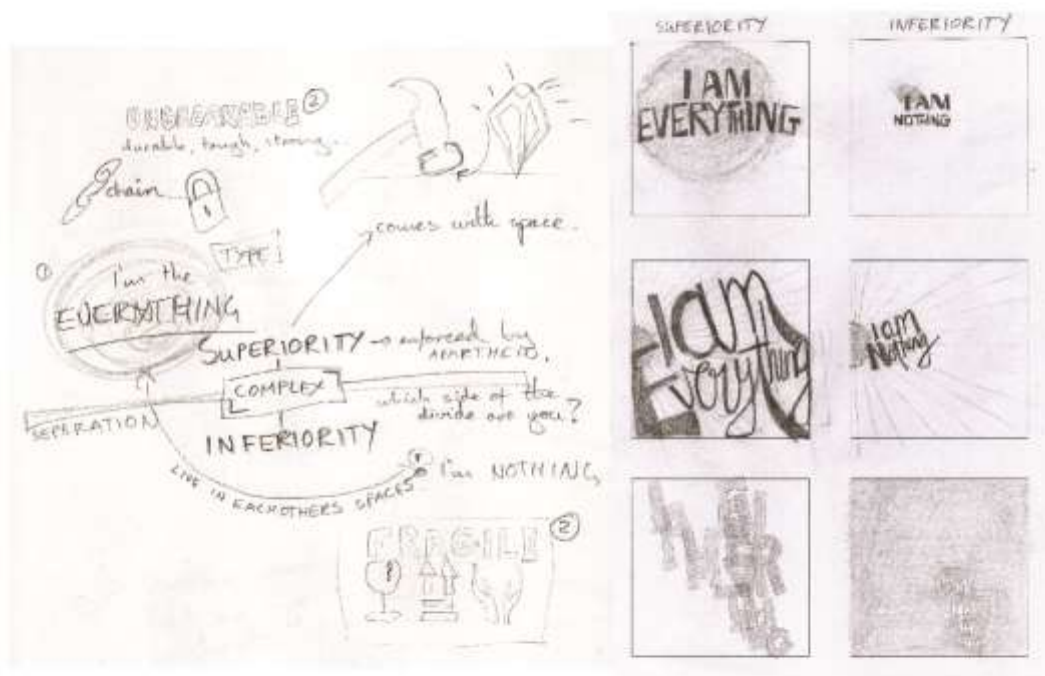 UNBREAKABLE ②
durable, tough, strong...
chain
comes with space.
TYPE
①
I'm the
EVERYTHING
SUPERIORITY → enforced by
APARTHEID.
COMPLEX
which side of the
divide are you?
SEPERATION
INFERIORITY
LIVE IN EACHOTHERS SPACES
I'm NOTHING
②
FRAGILE
SUPERIORITY
INFERIORITY
I AM
EVERYTHING
I AM
NOTHING
I am
Everything
I am
Nothing